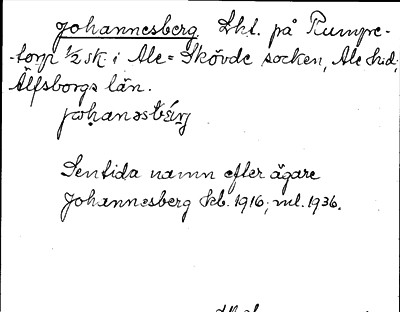 Johannesberg Lht. på Rumpe-
-torp 1/2 sk. i Ale-Skövde socken, Ale hd,
Älfsborgs län.
Sentida namn efter ägare
Johannesberg kb. 1916; ml. 1936.